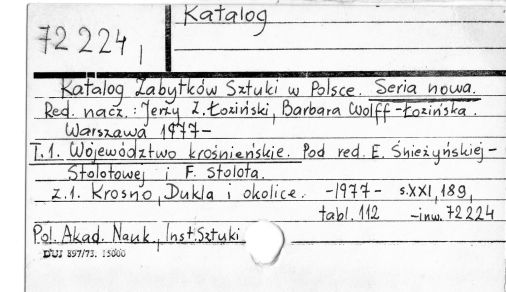 Katalog
72 224 |
Katalog Zabytków Sztuki w Polsce. Seria nowa.
Red. nacz.: Jerzy Z. Łoziński, Barbara Wolff-Łozińska.
Warszawa 1977-
T.1. Województwo krośnieńskie. Pod red. E. Śnieżyńskiej-
Stolotowej i F. Stolota.
z.1. Krosno, Dukla i okolice. -1977- s.XXI,189,
tabl. 112 -inw. 72224
Pol. Akad. Nauk., Inst. Sztuki
DUJ 897/73. 15000